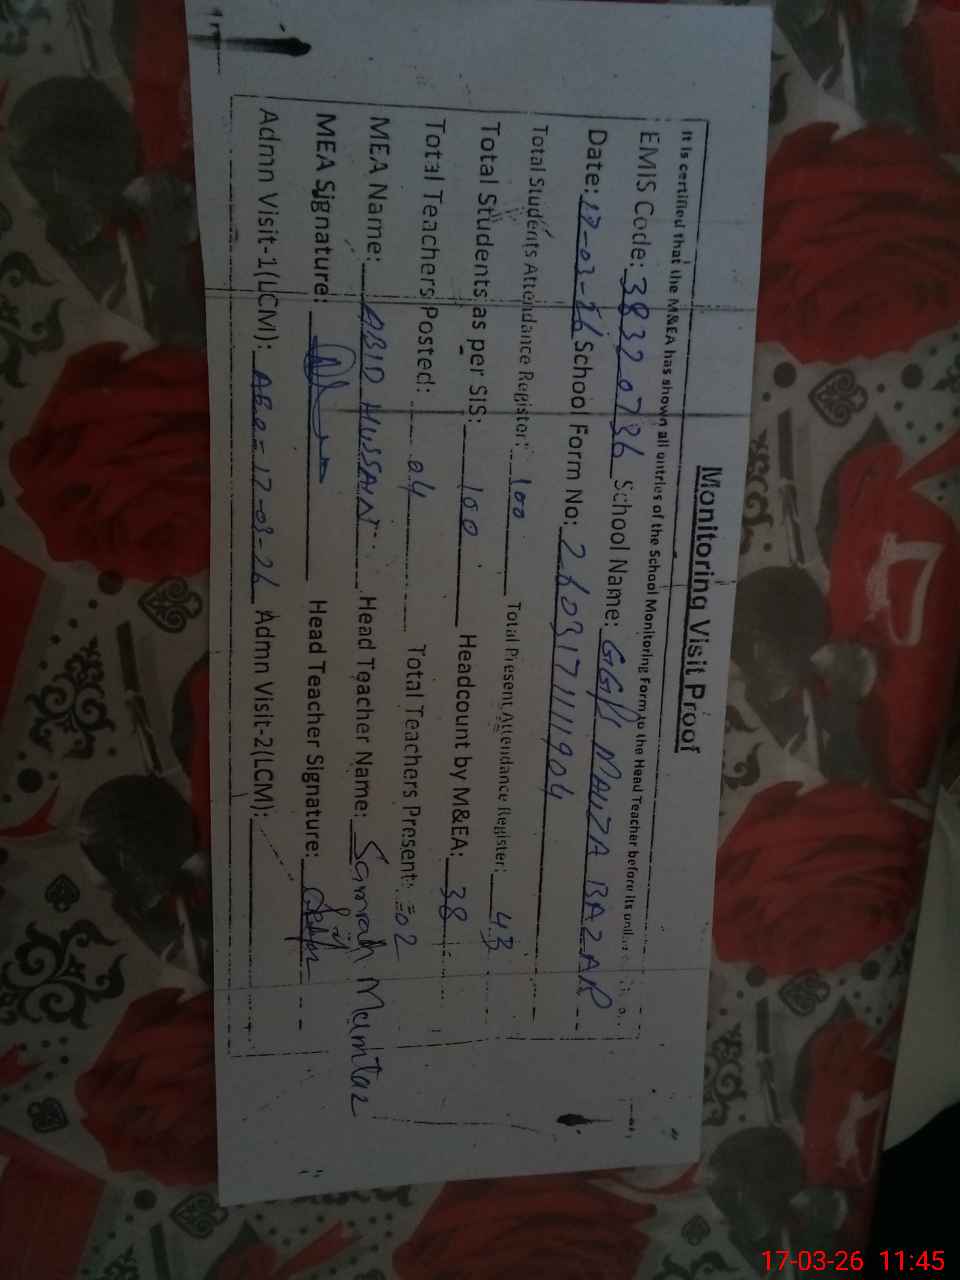 Monitoring Visit Proof
It is certified that the M&EA has shown all entries of the School Monitoring Form to the Head Teacher before its
EMIS Code: 38320736 School Name: GGPS MAUZA BAZAR
Date: 17-03-26 School Form No: 260317111904
Total Students Attendance Register: 100 Total Present Attendance Register: 43
Total Students as per SIS: 100 Headcount by M&EA: 38
Total Teachers Posted: 04 Total Teachers Present: =02
MEA Name: ABID HUSSAIN Head Teacher Name: Samrah Mumtaz
MEA Signature: Head Teacher Signature:
Admn Visit-1(LCM): AEO=17-03-26 Admn Visit-2(LCM):
17-03-26 11:45